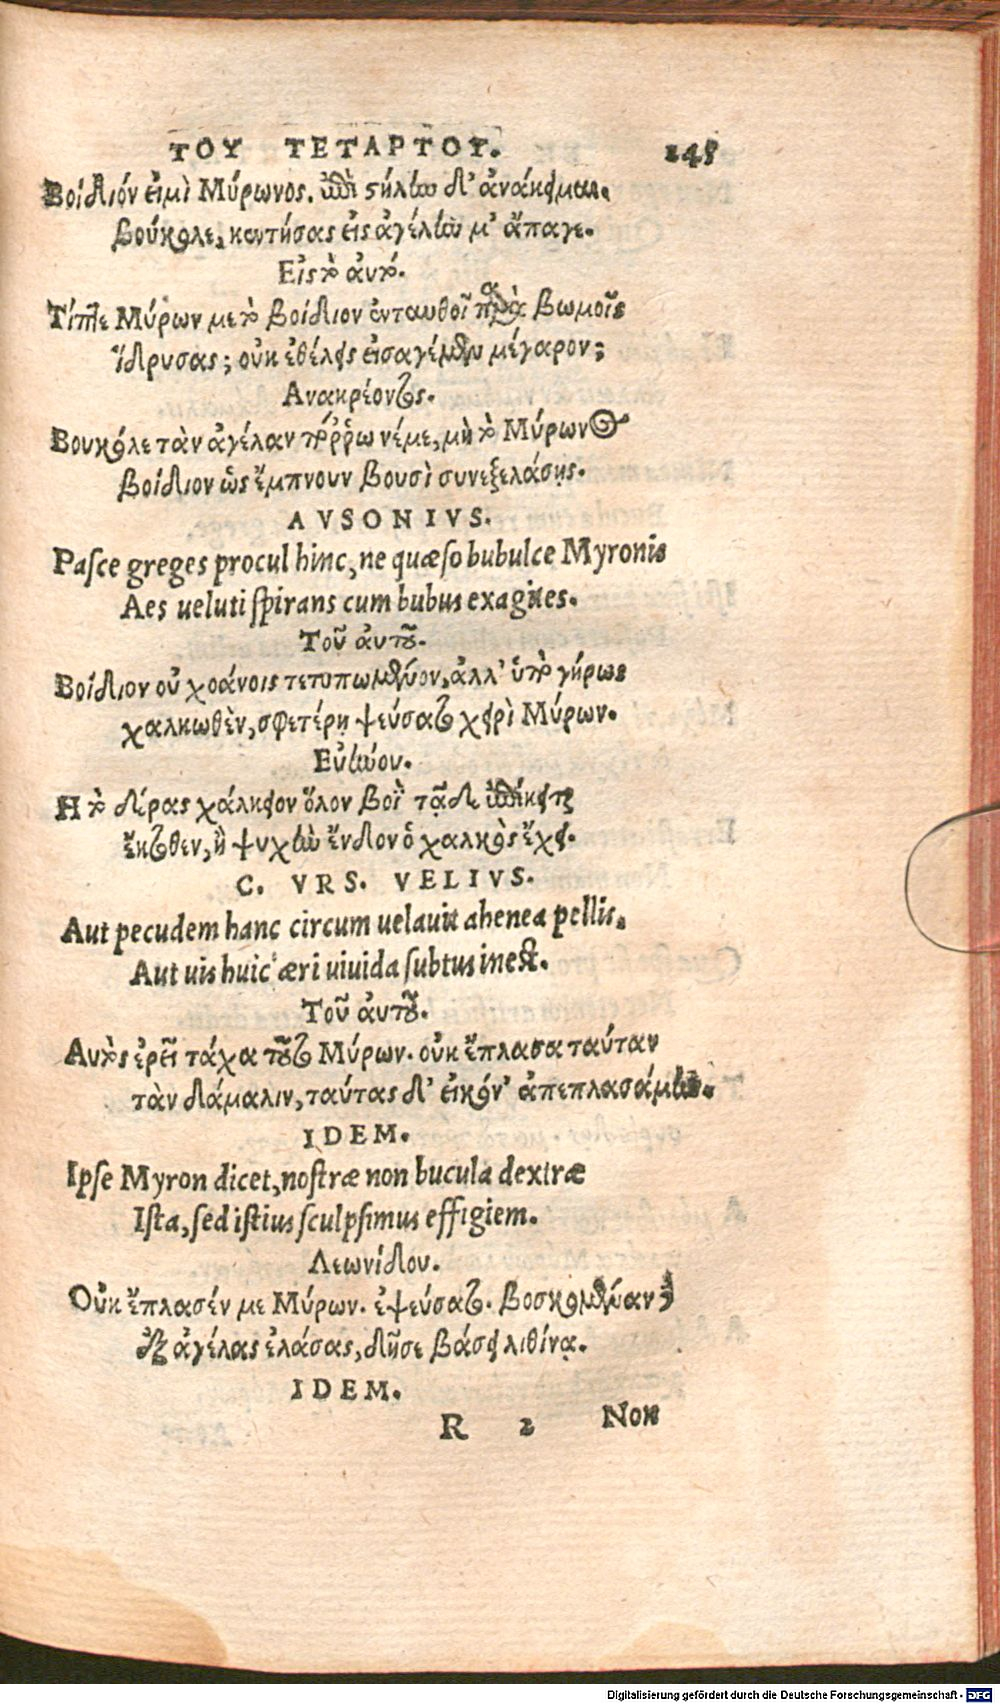 ΤΟΥ ΤΕΤΑΡΤΟΥ. 248
Βοίδιόν εἰμὶ Μύρωνος. ἐπὶ στήλην δ' ἀνάκειμαι.
βούκολε, κεντήσας εἰς ἀγέλην μ' ἄπαγε.
Εἰς τὸ αὐτό.
Τίπτε Μύρων με τὸ βοίδιον ἐνταυθοῖ παρὰ βωμοῖς
ἵδρυσας; οὐκ ἐθέλεις εἰσαγέμεν μέγαρον;
Ανακρέοντος.
Βουκόλε τὰν ἀγέλαν πόρρω νέμε, μὴ τὸ Μύρωνος
βοίδιον ὡς ἔμπνουν βουσὶ συνεξελάσῃς.
AVSONIVS.
Pasce greges procul hinc, ne quæso bubulce Myronis
Aes ueluti spirans cum bubus exagites.
Τοῦ αὐτοῦ.
Βοίδιον οὐ χοάνοις τετυπωμένον, ἀλλ' ὑπὸ γήρως
χαλκωθὲν, σφετέρῃ ψεύσατο χειρὶ Μύρων.
Εὐήνου.
Η τὸ δέρας χάλκειον ὅλον βοῒ τᾷδε ἐπίκειται
ἔκτοθεν, ἢ ψυχὴν ἔνδον ὁ χαλκὸς ἔχει.
C. VRS. VELIVS.
Aut pecudem hanc circum uelauit ahenea pellis,
Aut uis huic æri uiuida subtus inest.
Τοῦ αὐτοῦ.
Αυτὸς ἐρεῖ τάχα τοῦτο Μύρων. οὐκ ἔπλασα ταύταν
τὰν δάμαλιν, ταύτας δ' εἰκόν' ἀπεπλασάμην.
IDEM.
Ipse Myron dicet, nostræ non bucula dextræ
Ista, sed istius sculpsimus effigiem.
Λεωνίδου.
Οὐκ ἔπλασέν με Μύρων. ἐψεύσατο. βοσκομέναν δ'
ἐξ ἀγέλας ἐλάσας, δῆσε βάσει λιθίνᾳ.
IDEM.
R 2 Non
Digitalisierung gefördert durch die Deutsche Forschungsgemeinschaft - DFG